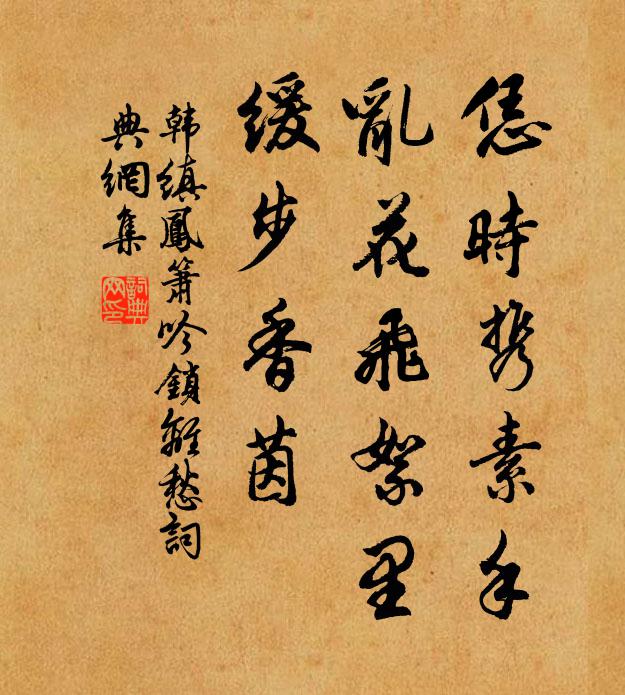 恁時携素手
亂花飛絮里
緩步香茵
韩缜鳳簫吟鎖離愁詞
典網集
詞典网印